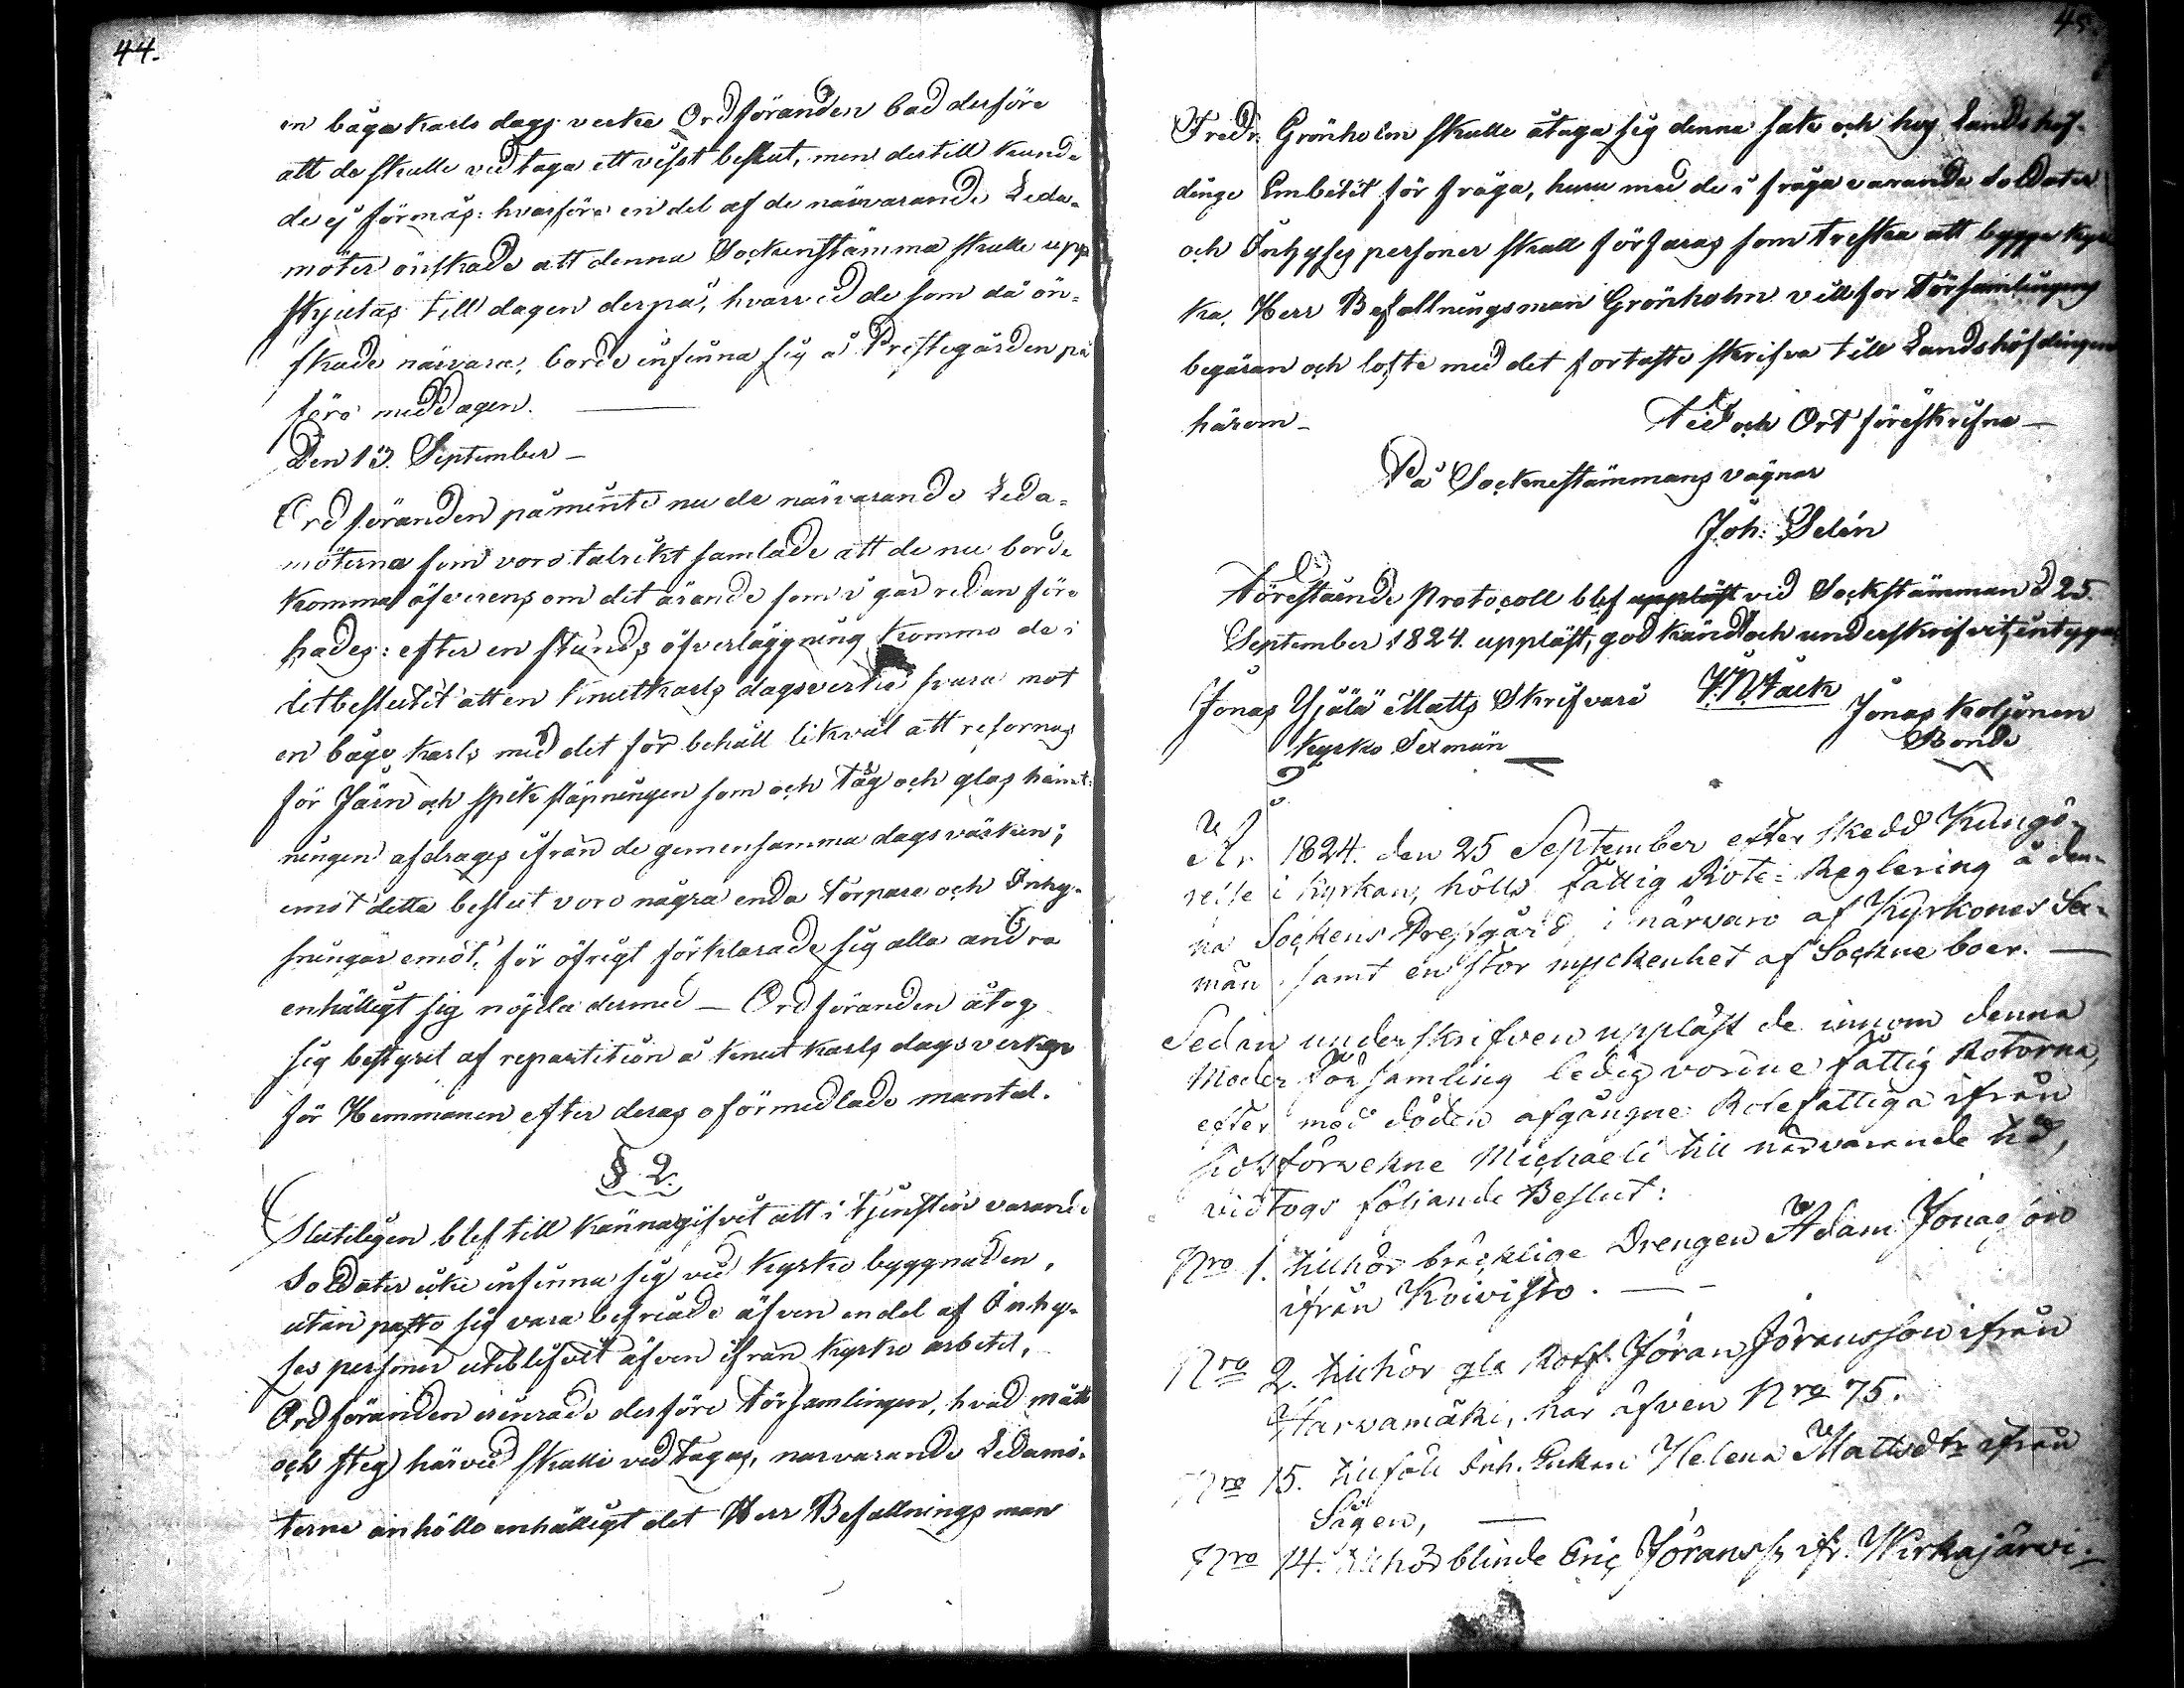 44.
en båga karls dags verke Ordföranden bad derföre
att de skulle vid taga ett visst beslut, men dertill kunde
de ej förmås: hvarföre en del af de närvarande Leda-
möter önskade att denna Sockenstämma skulle upp
skjutas till dagen derpå, hvarvid de som då ön-
skade närvara, borde infinna sig å Prestegården på
före middagen.
Den 13. September
Ordföranden påminte nu de närvarande Leda-
möterna som voro talrikt samlade att de nu borde
komma öfverens om det ärande som i går redan före
hades: efter en stunds öfverläggning kommo de i
det beslutit att en knutkarls dagsverke svara mot
en båge karls med det för behåll likväl att refornas
för Järn och spik släpningen som och tåg och glas hämt-
ningen afdrages ifrån de gemensamma dagsvärken;
emot detta beslut voro några enda torpare och Inhy-
singar emot, för öfrigt förklarade sig alla andra
enhälligt sig nöjda dermed — Ordföranden åtog
sig bestyret af repartition å knut karls dagsverken
för Hemmanen efter deras oförmedlade mantal.
§ 2.
Sluteligen blef till kännagifvet att i tjensten varande
Soldater icke infinna sig vid kyrko byggnaden,
utan påsto sig vara befriade äfven en del af Inhy-
ses personer uteblifvit äfven ifrån kyrko arbetet,
Ordföranden erinrade derföre Församlingen, hvad mått
och steg härvid skulle vidtagas, närvarande Ledamö-
terne anhöllo enhälligt det Herr Befallningsman
45.
Fredr. Grönholm skulle åtaga sig denna sak och hos Landshöf-
dinge Embetet för fråga, huru med de i fråga varande Soldater
och Inhyses personer skall förfaras som treska att bygga kyr
ka. Herr Befallningsman Grönholm villfor Församlingens
begäran och lofte med det fortaste skrifva till Landshöfdingen
härom
Tid och Ort föreskrifne
På Sockenestämmans vägnar
Joh: Selén
Förestående Protocoll blef vid Sockstämman d 25
September 1824. uppläst, godkändt och underskrifvit, intyga
Jonas Yjälä Matts Skrifvare
Jonas Koljonen
Kyrko Sexmän
Bonde
År 1824. den 25 September efter skedd Kungö-
relse i Kyrkan, hölls fattig Rote-Reglering å den-
na Sockens Prestgård, i närvaro af Kyrkones Sex-
män samt en stor myckenhet af Sockne boer. —
Sedan underskrifven uppläst de innom denna
Moder Församling ledig vordne fattig Rotorna,
efter med döden afgångne Rotefattiga ifrån
sidstförvekne Michaeli till närvarande tid,
vidtogs följande Beslut:
Nro 1. tillhör bräcklige Drengen Adam Jonasson
ifrån Koivisto. —
Nro 2. tillhör gla Rotf. Jöran Jöransson ifrån
Harvamäki, har äfven Nro 75.
Nro 15. tillföll Inh. Enkan Helena Mattsdtr ifrån
Sågen, —
Nro 14. tillhör blinde Eric Jöranss. ifr. Wirkajärvi.